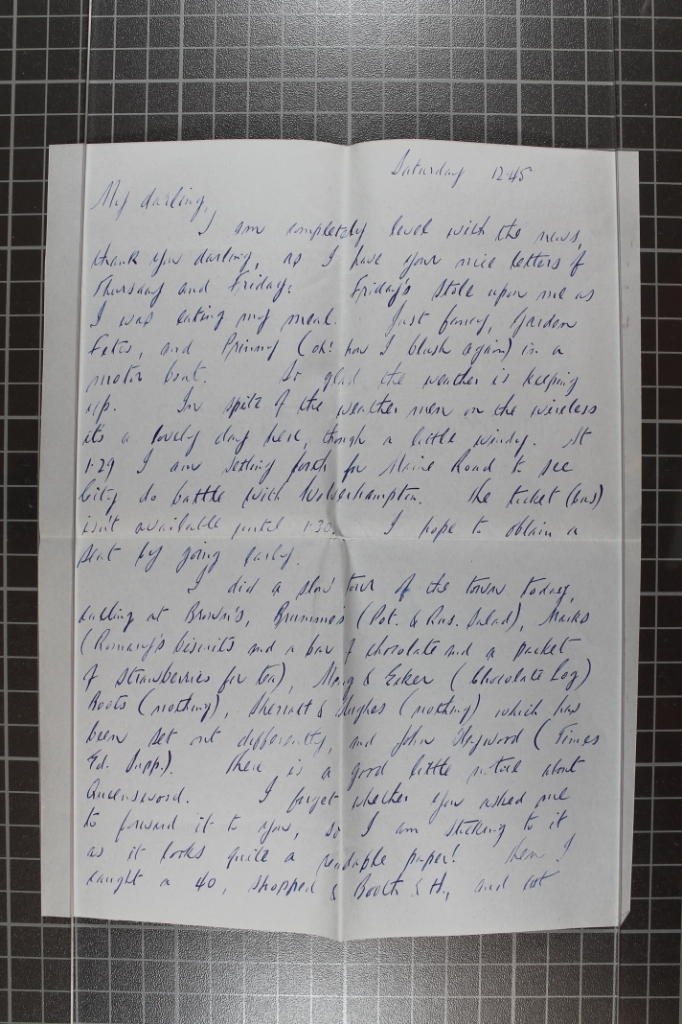 Saturday 12.45
My darling,
I am completely level with the news,
thank you darling, as I have your nice letters of
Thursday and Friday. Friday's stole upon me as
I was eating my meal. Just fancy, Garden
Fetes, and (oh! how I blush again) in a
motor boat. So glad the weather is keeping
up. In spite of the weather men on the wireless
its a lovely day here, though a little windy. At
1.29 I am setting forth for Maine Road to see
City do battle with Wolverhampton. The ticket (bus)
isn't available until 1.30. I hope to obtain a
seat by going early.
I did a slow tour of the town today,
calling at Brown's, (Pot. & Rus. Salad), Marks
(Romany's biscuits and a bar of chocolate and a packet
of strawberries for tea), & (Chocolate Log)
Boots (nothing), Sherratt & Hughes (nothing) which has
been set out differently, and John Heywood (Times
Ed. Supp.). There is a good little notice about
Queenswood. I forget whether you asked me
to forward it to you, so I am sticking to it
as it looks quite a readable paper! Then I
caught a 40, shopped @ Booth & H., and cut